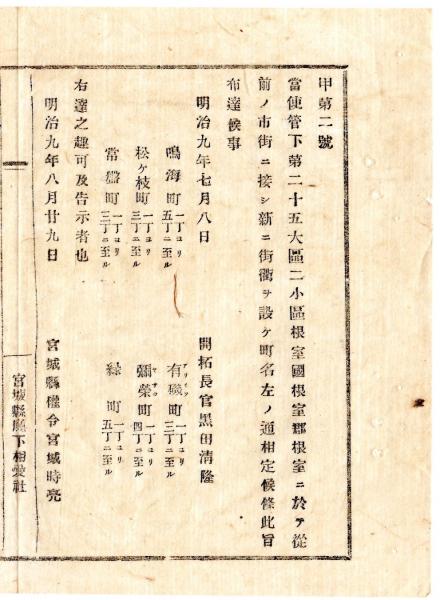 甲第二號
當使管下第二十五大區二小區根室國根室郡根室ニ於テ從
前ノ市街ニ接シ新ニ街衢ヲ設ケ町名左ノ通相定候條此旨
布達候事
明治九年七月八日
開拓長官黑田清隆
鳴海町 一丁ヨリ五丁ニ至ル
有磯町 一丁ヨリ三丁ニ至ル
アリイソ
松ケ枝町 一丁ヨリ三丁ニ至ル
彌榮町 一丁ヨリ四丁ニ至ル
ヤサカ
常盤町 一丁ヨリ三丁ニ至ル
綠町 一丁ヨリ五丁ニ至ル
右達之趣可及告示者也
明治九年八月廿九日
宮城縣權令宮城時亮
宮城縣廳下相愛社